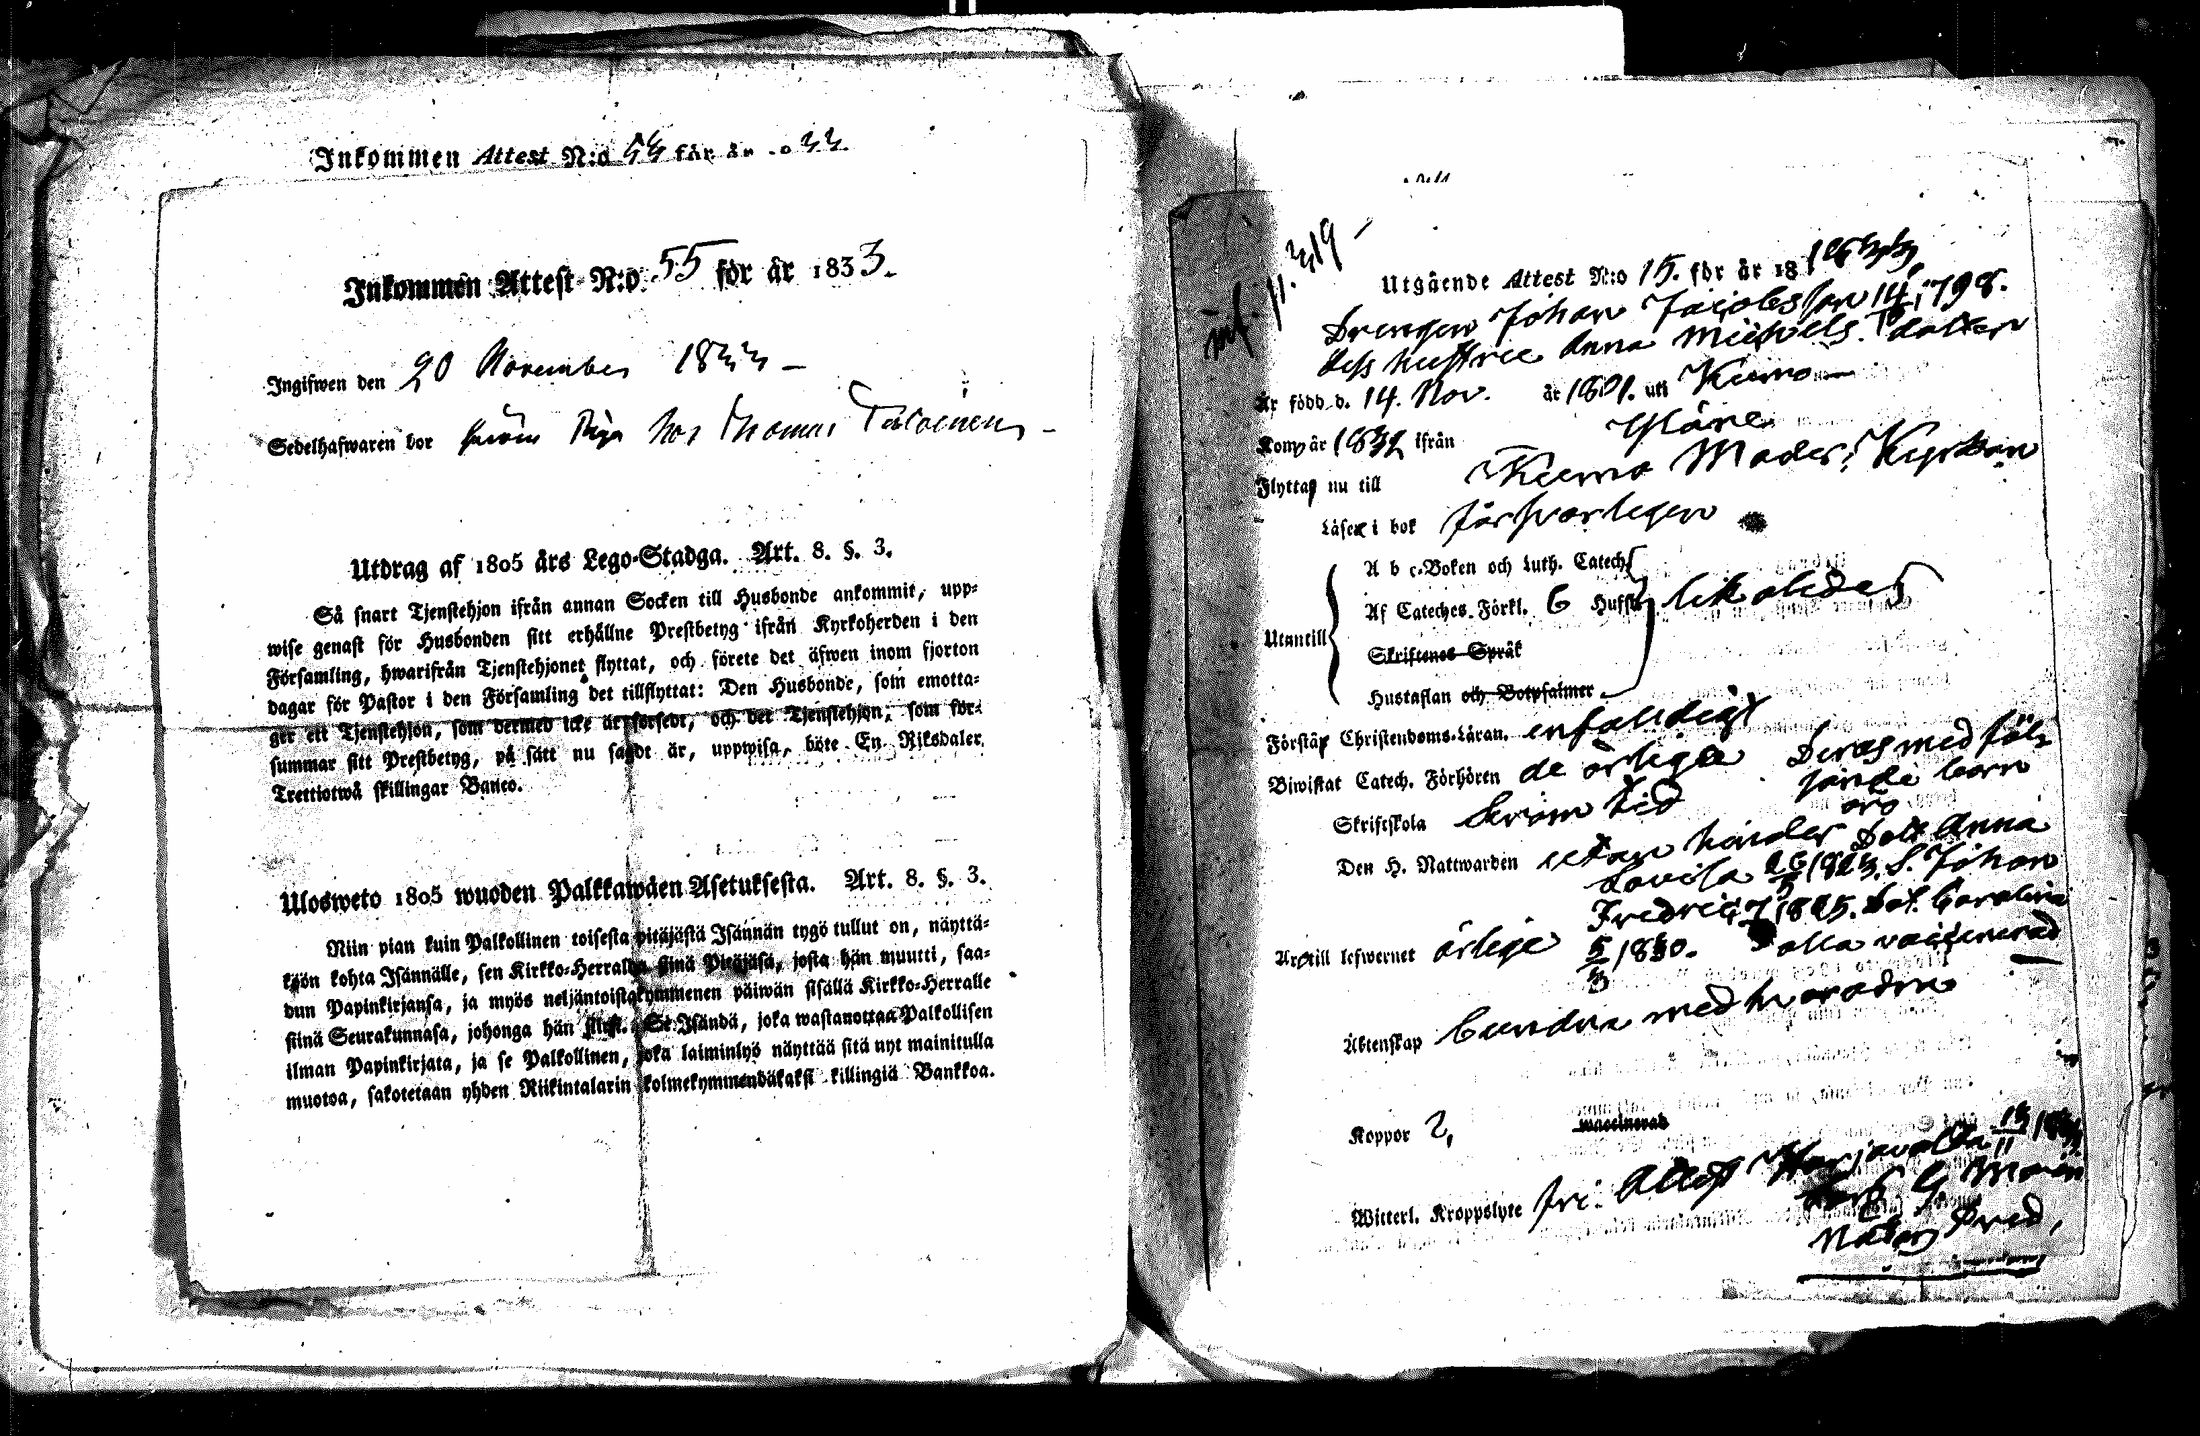 Inkommen Attest N:o 54 för år
Inkommen Attest N:o 55 för år 1833.
Ingifwen den 20 November 1833 –
Sedelhafwaren bor såsom Piga hos Thomas
Utdrag af 1805 års Lego-Stadga. Art. 8. §. 3.
Så snart Tjenstehjon ifrån annan Socken till Husbonde ankommit, upp-
wise genast för Husbonden sitt erhållne Prestbetyg ifrån Kyrkoherden i den
Församling, hwarifrån Tjenstehjonet flyttat, och förete det äfwen inom fjorton
dagar för Pastor i den Församling det tillflyttat: Den Husbonde, som emotta-
ger ett Tjenstehjon, som dermed icke är försedt, och det Tjenstehjon, som för-
summar sitt Prestbetyg, på sätt nu sagdt är, uppwisa, böte En Riksdaler
Trettiotwå skillingar Banco.
Ulosweto 1805 wuoden Palkkawäen Asetuksesta. Art. 8. §. 3.
Niin pian kuin Palkollinen toisesta pitäjästä Isännän tygö tullut on, näyttä-
köön kohta Isännälle, sen Kirkko-Herralda siinä Pitäjäsä, josta hän muutti, saa-
dun Papinkirjansa, ja myös neljäntoistakymmenen päiwän sisällä Kirkko-Herralle
siinä Seurakunnasa, johonga hän siirt. Se Isändä, joka wastanottaa Palkollisen
ilman Papinkirjata, ja se Palkollinen, joka laiminlyö näyttää sitä nyt mainitulla
muotoa, sakotetaan yhden Riikintalarin kolmekymmendäkaksi killingiä Bankkoa.
319
Utgående Attest N:o 15. för år 18 1833,
Drengen Johan Jacobsson 14/10 1798.
dess hustru Anna Michels dotter
Är född d. 14. Nov. år 1801. uti Kumo –
Kom år 1832 ifrån
Flyttar nu till Kumo Moder Kyrkan
Läser i bok försvarligen
A b c-Boken och Luth. Catech.
Utantill Af Cateches. Förkl. 6 Hufst. likaledes
Skriftenes Språk
Hustaflan och Botpsalmer
Förstår Christendoms-Läran. enfaldigt
Biwistat Catech. Förhören de årlige Deras med föl-
jande barn
Skriftskola i sin tid äro
Den H. Nattwarden utan hinder Dott. Anna
Lovisa 26/5 1823. S. Johan
Fredric 1825. Dot. Carolina
Är till lefwernet ärlige 5/3 1830. alla vaccinerad
Äktenskap bundna med hvarandra
Koppor 2, waccinerad
Witterl. Kroppslyte fri. Attest. Harjavalta
G Morén
Pred,